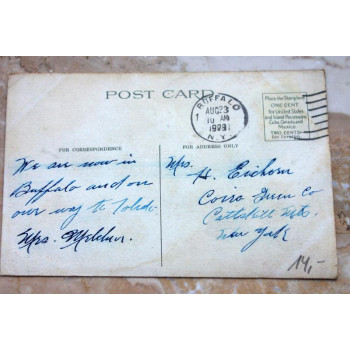 POST CARD
BUFFALO
AUG 23
10 AM
N.Y.
1
Place the Stamp here
ONE CENT
for United States
and Island Possessions
Cuba, Canada and
Mexico
TWO CENTS
for Foreign
FOR CORRESPONDENCE
FOR ADDRESS ONLY
We are now in
Buffalo and on
our way to Toledo.
Mrs.
Mrs.
H. Eichorn
Co
Catskill Mts.
New York
14,-